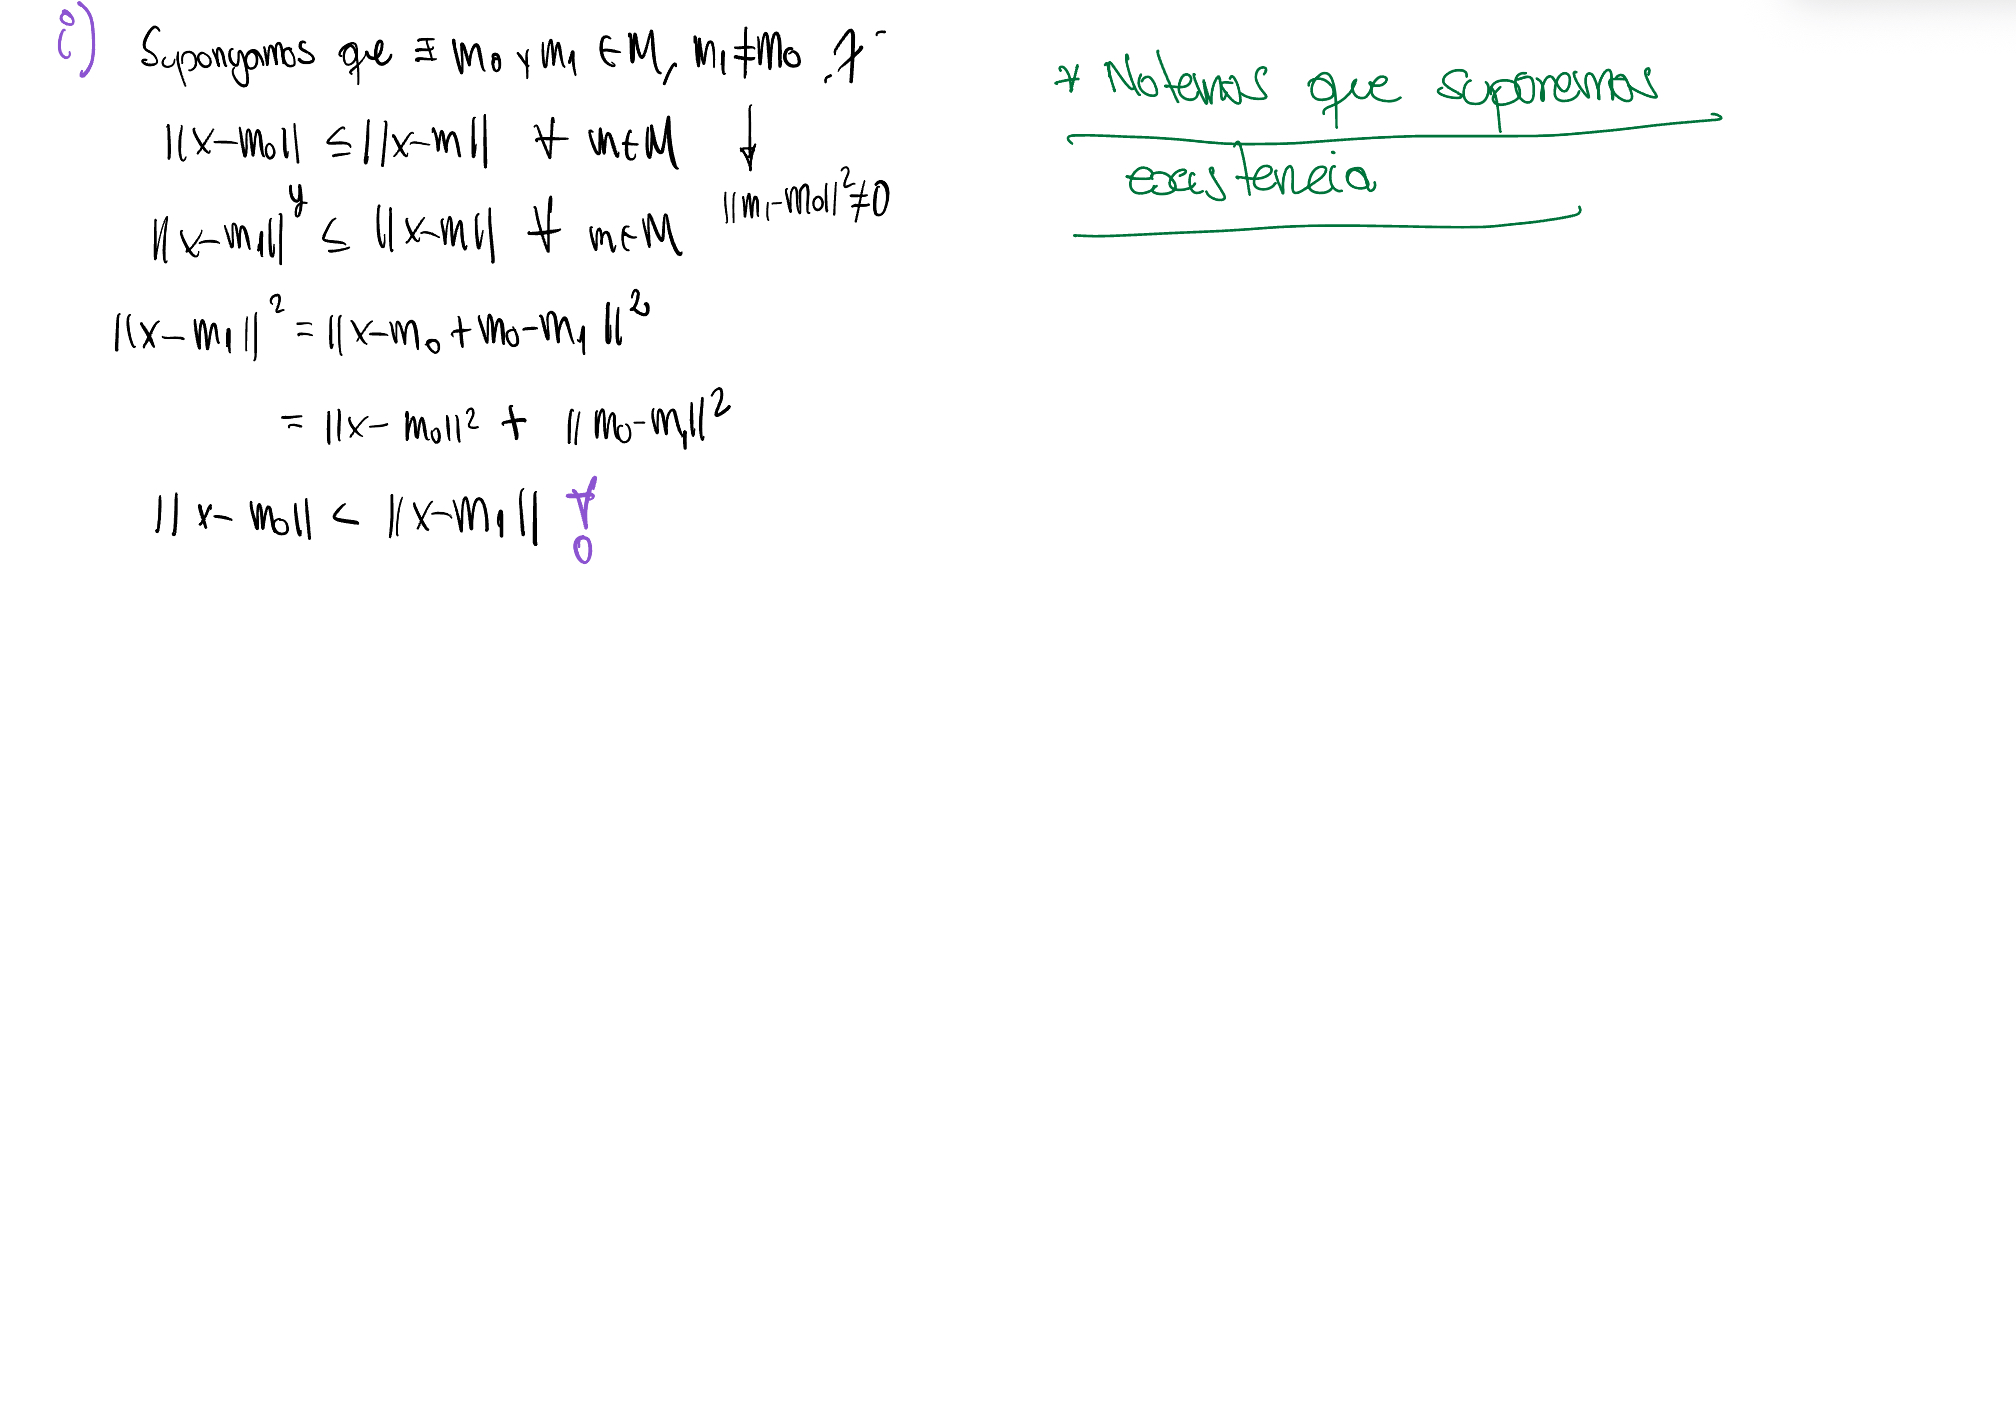 i) Supongamos que ∃ m₀ y m₁ ∈ M, m₁ ≠ m₀ .7
||x-m₀|| ≤ ||x-m|| ∀ m∈M ↓
y ||m₁-m₀||² ≠ 0
||x-m₁|| ≤ ||x-m|| ∀ m∈M
||x-m₁||² = ||x-m₀ + m₀-m₁||²
= ||x-m₀||² + ||m₀-m₁||²
||x-m₀|| < ||x-m₁||
* Notemos que suponemos
existencia